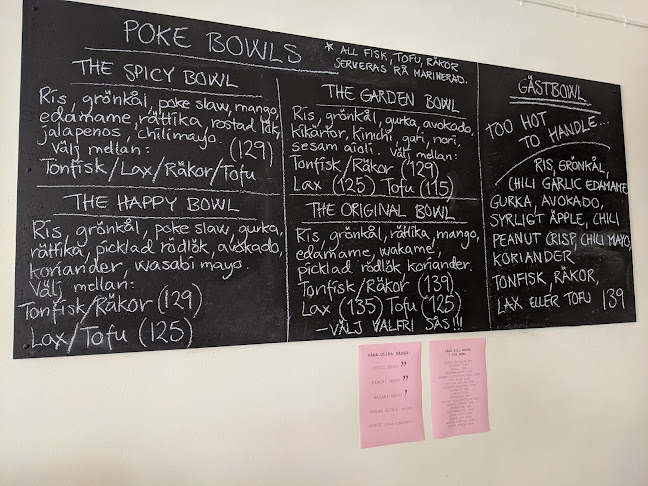 POKE BOWLS
* ALL FISK, TOFU, RÄKOR
SERVERAS RÅ MARINERAD.
THE SPICY BOWL
Ris, grönkål, poke slaw, mango,
edamame, rättika, rostad lök,
jalapenos, chilimayo.
Välj mellan: (129)
Tonfisk/Lax/Räkor/Tofu
THE HAPPY BOWL
Ris, grönkål, poke slaw, gurka,
rättika, picklad rödlök, avokado,
koriander, wasabi mayo.
Välj mellan:
Tonfisk/Räkor (129)
Lax/Tofu (125)
THE GARDEN BOWL
Ris, grönkål, gurka, avokado,
kikärtor, kimchi, gari, nori,
sesam aioli. Välj mellan:
Tonfisk/Räkor (129)
Lax (125) Tofu (115)
THE ORIGINAL BOWL
Ris, grönkål, rättika, mango,
edamame, wakame,
picklad rödlök, koriander.
Tonfisk/Räkor (139)
Lax (135) Tofu (125)
— VÄLJ VALFRI SÅS!!!
GÄSTBOWL
TOO HOT
TO HANDLE...
RIS, GRÖNKÅL,
CHILI GARLIC EDAMAME
GURKA, AVOKADO,
SYRLIGT ÄPPLE, CHILI
PEANUT CRISP, CHILI MAYO,
KORIANDER
TONFISK, RÄKOR,
LAX ELLER TOFU 139
VÅRA OLIKA SÅSER:
CHILI MAYO
KIMCHI MAYO
WASABI MAYO
SESAM AIOLI